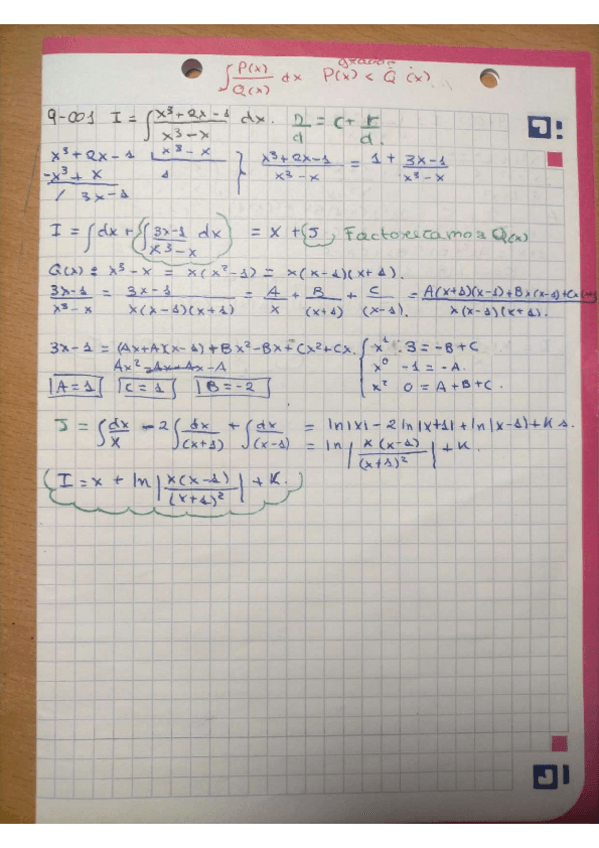 ∫ P(x)/Q(x) dx grados P(x) < Q(x).
9-001 I = ∫ (x³+2x-1)/(x³-x) dx. D/d = C + r/d.
x³+2x-1 | x³-x } (x³+2x-1)/(x³-x) = 1 + (3x-1)/(x³-x)
-x³+x 1
/ 3x-1
I = ∫dx + ∫ (3x-1)/(x³-x) dx = x + J, Factorizamos Q(x)
Q(x) = x³-x = x(x²-1) = x(x-1)(x+1).
(3x-1)/(x³-x) = (3x-1)/(x(x-1)(x+1)) = A/x + B/(x+1) + C/(x-1). = (A(x+1)(x-1)+Bx(x-1)+Cx(x+1))/(x(x-1)(x+1)).
3x-1 = (Ax+A)(x-1)+Bx²-Bx+Cx²+Cx. { x¹. 3 = -B+C
Ax²-Ax+Ax-A x⁰ -1 = -A.
A=1 C=1 B=-2 x² 0 = A+B+C.
J = ∫dx/x - 2∫dx/(x+1) + ∫dx/(x-1) = ln|x| - 2 ln|x+1| + ln|x-1| + K
= ln|x(x-1)/(x+1)²| + K.
I = x + ln|x(x-1)/(x+1)²| + K.